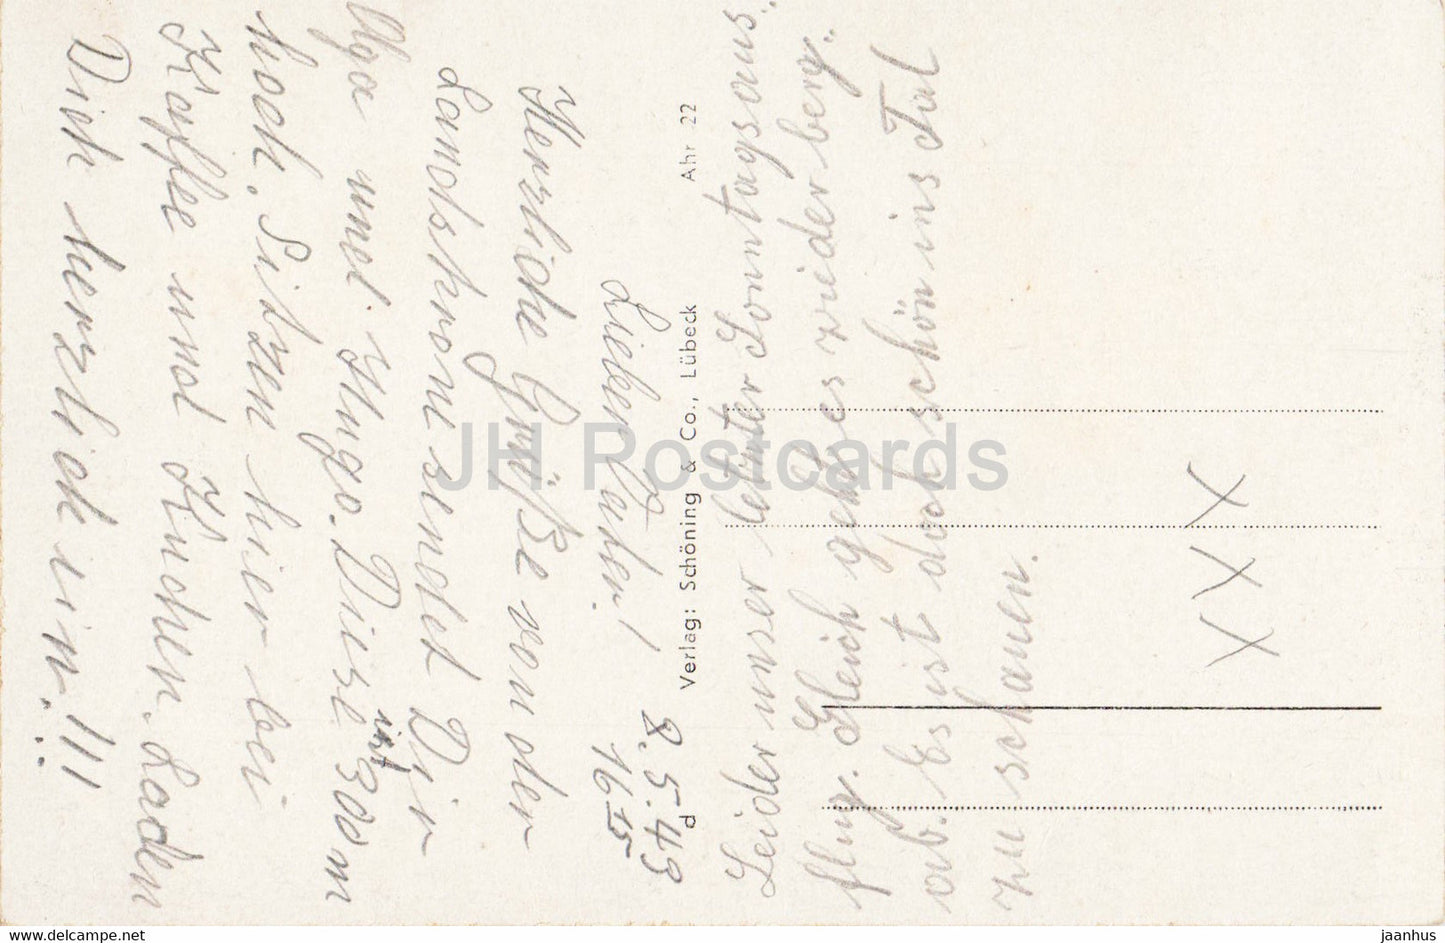 8.5.49
16 15
Lieber Vater!
Herzliche Grüße von der
Landskrone sendet Dir
Olga und Hugo. Diese ist 300 m
hoch. Sitzen hier bei
Kaffee und Kuchen. Laden
Dich herzlich ein.!!!
Leider unser letzter Sonntagsaus-
flug. Gleich geht es wieder berg-
ab. Es ist doch schön ins Tal
zu schauen.
XXX
d Verlag: Schöning & Co., Lübeck Ahr 22
JH Postcards
www.delcampe.net
jaanhus